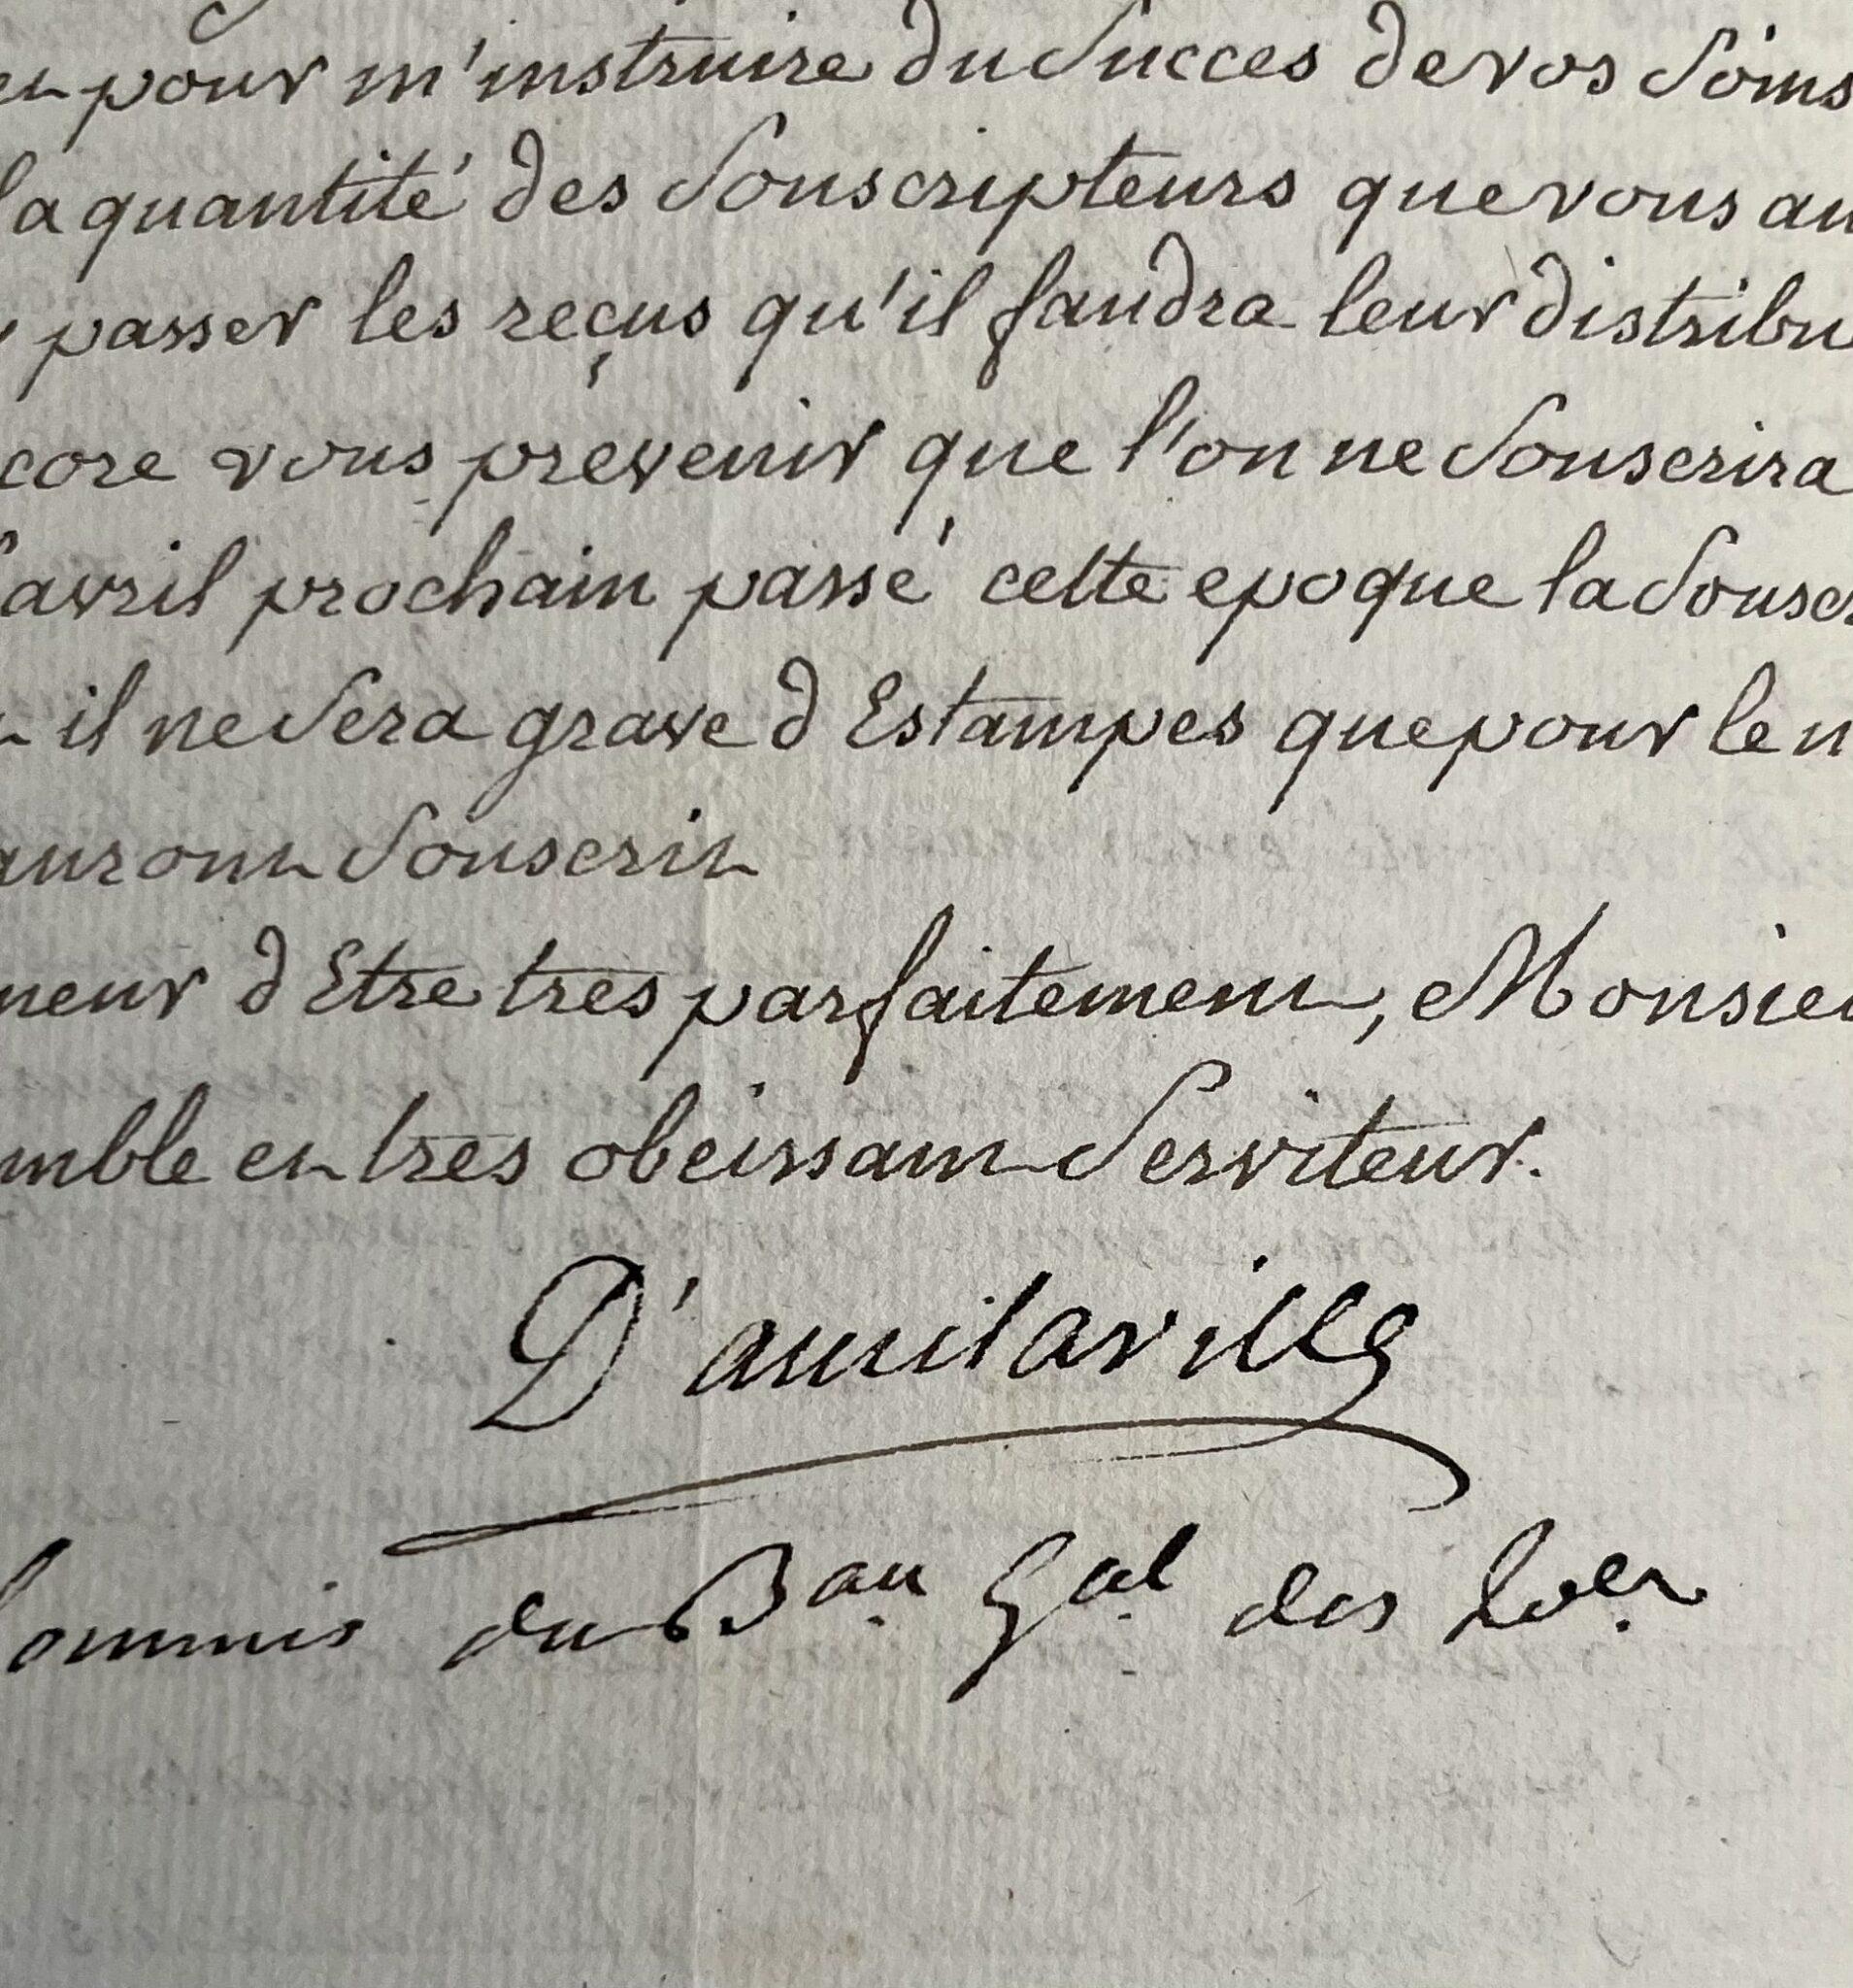 et pour m'instruire du Succes de vos Soins
la quantité des Souscripteurs que vous au
passer les reçus qu'il faudra leur distribu
core vous prevenir que l'on ne Souscrira
d'avril prochain passé cette epoque la Souscr
il ne Sera grave d Estampes que pour le n
auront Souscrit
neur d Etre tres parfaitement, Monsieu
mble et tres obeissant Serviteur.
D'amilaville
Commis du Bau Gal des